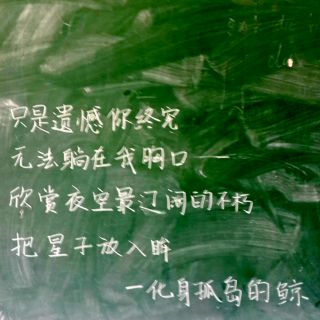 只是遗憾你终究
无法躺在我胸口—
欣赏夜空最辽阔的不朽
把星子放入眸
—化身孤岛的鲸